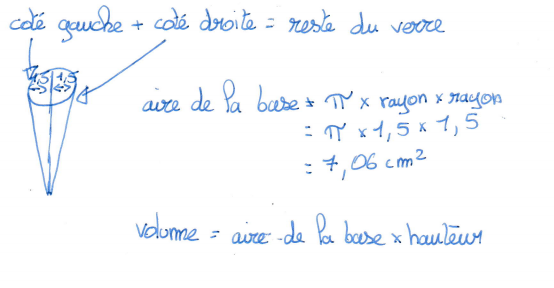 coté gauche + coté droite = reste du verre
1,5 1,5
aire de la base = π × rayon × rayon
= π × 1,5 × 1,5
= 7,06 cm²
volume = aire de la base × hauteur